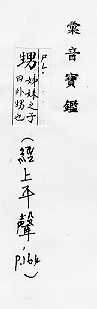 彙音寶鑑
P.L.
甥 姊妹之子
曰外甥也
(經上平聲
P.164)